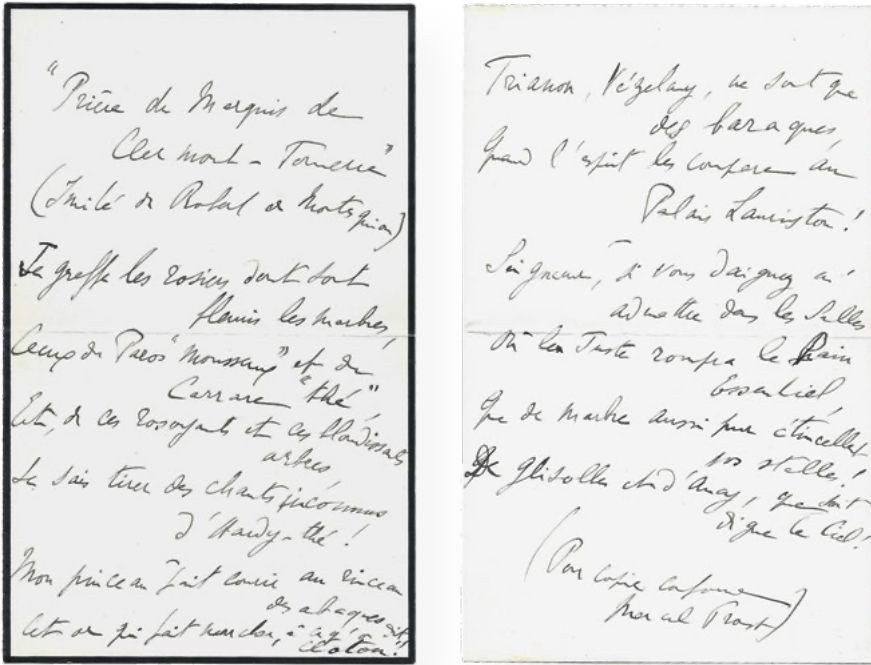 "Prière du Marquis de
Clermont-Tonnerre"
(Imité de Robert de Montesquiou)
Je greffe les rosiers dont sont
fleuris les marbres,
Ceux du Paros "mousseux" et du
Carrare "thé",
Et, de ces rosoyants et ces blondissants
arbres
Je sais tirer des chants inconnus
d'Hardy-thé!
Mon pinceau fait courir au rinceau
des abaques
Cet or qui fait marcher, à
Trianon, Vézelay, ne sont que
des baraques,
Quand l'esprit les compare au
Palais Lauriston!
Seigneur, si vous daignez m'
admettre dans les Salles
Où le Juste rompra le Pain
Essentiel,
Que de marbre aussi pur étincellent
vos stalles!
De Glisolles et d'Ancy, que soit
digne le Ciel!
(Pour copie conforme
Marcel Proust)